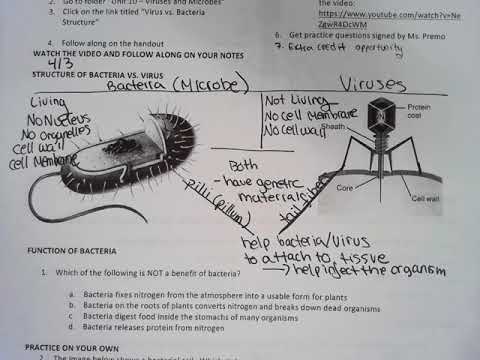 2. Go to folder "Unit 10 – Viruses and Microbes"
3. Click on the link titled "Virus vs. Bacteria
Structure"
4. Follow along on the handout
the video:
https://www.youtube.com/watch?v=Ne
ZgwR4DcWM
6. Get practice questions signed by Ms. Premo
7. Extra credit opportunity
WATCH THE VIDEO AND FOLLOW ALONG ON YOUR NOTES
4/3
STRUCTURE OF BACTERIA VS. VIRUS
Bacteria (Microbe)
Viruses
Living
No Nucleus
No organelles
Cell wall
Cell Membrane
Not Living
No cell Membrane
No cell wall
Protein
coat
Sheath
Core
Cell wall
Both
- have genetic
material
pilli (pillum)
tail fiber
help bacteria/virus
to attach to tissue
→ help infect the organism
FUNCTION OF BACTERIA
1. Which of the following is NOT a benefit of bacteria?
a. Bacteria fixes nitrogen from the atmosphere into a usable form for plants
b. Bacteria on the roots of plants converts nitrogen and breaks down dead organisms
c Bacteria digest food inside the stomachs of many organisms
d. Bacteria releases protein from nitrogen
PRACTICE ON YOUR OWN
2. The image below shows a bacterial cell.